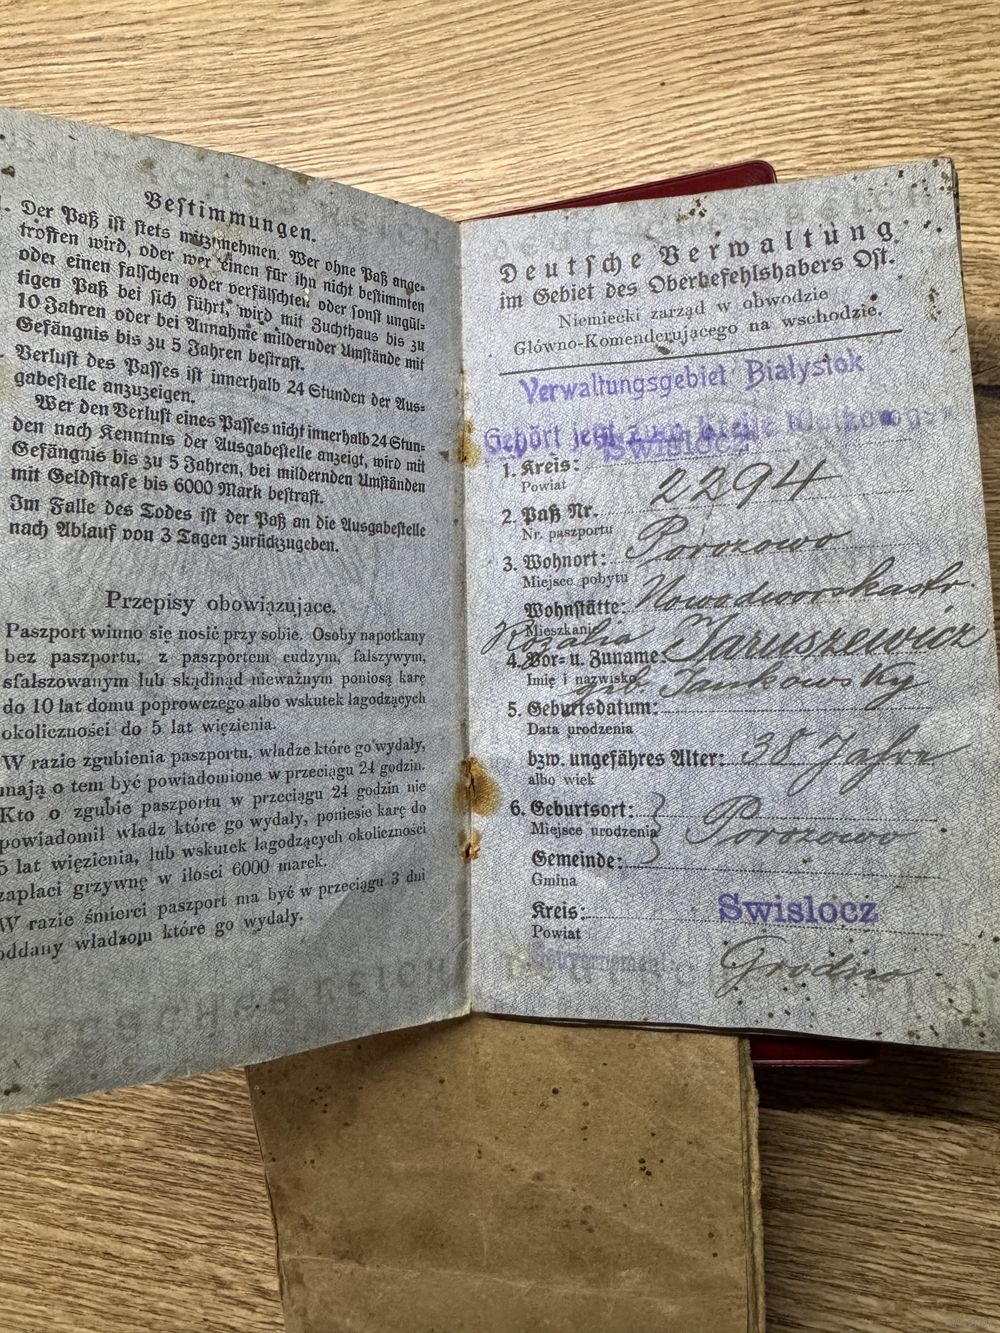 Bestimmungen.
Der Paß ist stets mitzunehmen. Wer ohne Paß ange-
troffen wird, oder wer einen für ihn nicht bestimmten
oder einen falschen oder verfälschten oder sonst ungül-
tigen Paß bei sich führt, wird mit Zuchthaus bis zu
10 Jahren oder bei Annahme mildernder Umstände mit
Gefängnis bis zu 5 Jahren bestraft.
Verlust des Passes ist innerhalb 24 Stunden der Aus-
gabestelle anzuzeigen.
Wer den Verlust eines Passes nicht innerhalb 24 Stun-
den nach Kenntnis der Ausgabestelle anzeigt, wird mit
Gefängnis bis zu 5 Jahren, bei mildernden Umständen
mit Geldstrafe bis 6000 Mark bestraft.
Im Falle des Todes ist der Paß an die Ausgabestelle
nach Ablauf von 3 Tagen zurückzugeben.
Przepisy obowiązujące.
Paszport winno się nosić przy sobie. Osoby napotkany
bez paszportu, z paszportem cudzym, falszywym,
sfałszowanym lub skądinąd nieważnym poniosą karę
do 10 lat domu poprowczego albo wskutek łagodzących
okoliczności do 5 lat więzienia.
W razie zgubienia paszportu, władze które go wydały,
mają o tem być powiadomione w przeciągu 24 godzin.
Kto o zgubie paszportu w przeciągu 24 godzin nie
powiadomil władz które go wydały, poniesie karę do
5 lat więzienia, lub wskutek łagodzących okoliczności
zapłaci grzywnę w ilości 6000 marek.
W razie śmierci paszport ma być w przeciągu 3 dni
oddany władzom które go wydały.
Deutsche Verwaltung
im Gebiet des Oberbefehlshabers Ost.
Niemiecki zarząd w obwodzie
Główno-Komenderującego na wschodzie.
Verwaltungsgebiet Białystok
Gehört jetzt zum Kreise Wolkowysk
1. Kreis: Swislocz
Powiat
2. Paß Nr. 2294
Nr. paszportu
3. Wohnort: Porozowo
Miejsce pobytu
Wohnstätte: Nowodworskastr.
Mieszkanie
4. Vor- u. Zuname: Rozalia Jaruszewicz
Imię i nazwisko geb. Jankowsky
5. Geburtsdatum:
Data urodzenia
bzw. ungefähres Alter: 38 Jahre
albo wiek
6. Geburtsort: Porozowo
Miejsce urodzenia
Gemeinde:
Gmina
Kreis: Swislocz
Powiat
Grodno